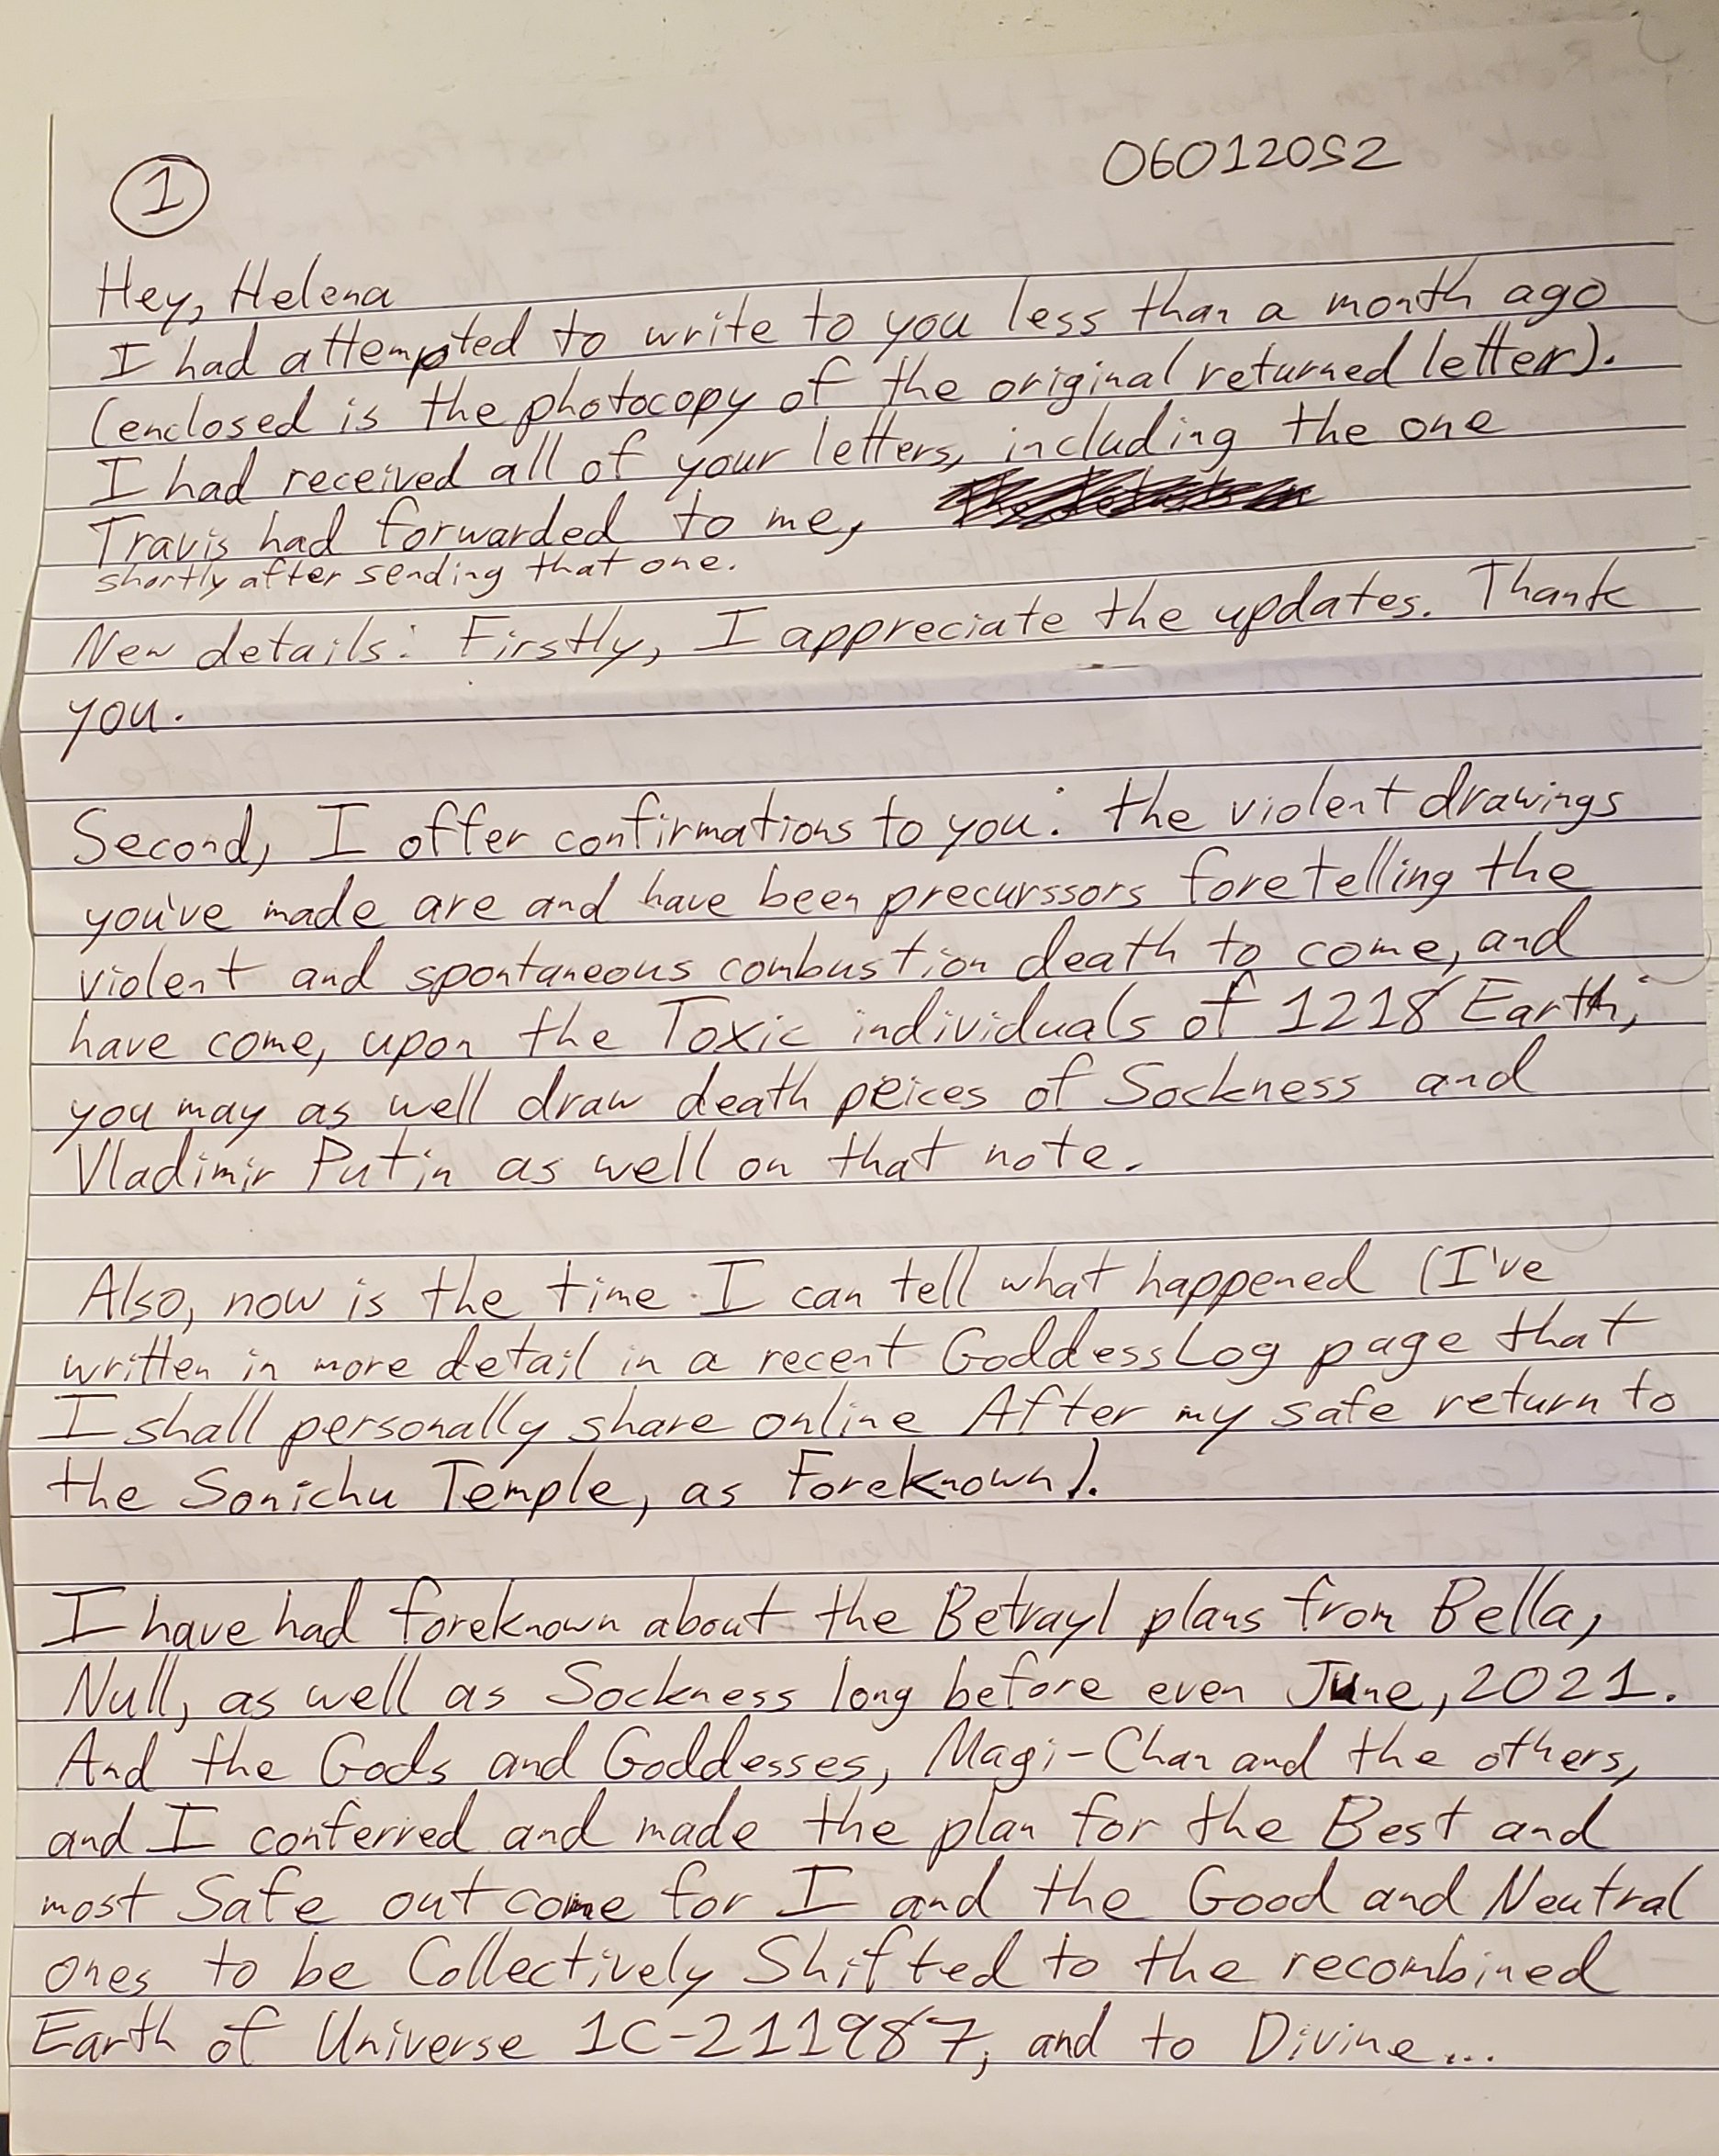 1
06012052
Hey, Helena
I had attempted to write to you less than a month ago
(enclosed is the photocopy of the original returned letter).
I had received all of your letters, including the one
Travis had forwarded to me,
shortly after sending that one.
New details: Firstly, I appreciate the updates. Thank
you.
Second, I offer confirmations to you: the violent drawings
you've made are and have been precurssors foretelling the
violent and spontaneous combustion death to come, and
have come, upon the Toxic individuals of 1218 Earth;
you may as well draw death peices of Sockness and
Vladimir Putin as well on that note.
Also, now is the time I can tell what happened (I've
written in more detail in a recent GoddessLog page that
I shall personally share online After my safe return to
the Sonichu Temple, as Foreknown).
I have had foreknown about the Betrayl plans from Bella,
Null, as well as Sockness long before even June, 2021.
And the Gods and Goddesses, Magi-Chan and the others,
and I conferred and made the plan for the Best and
most Safe outcome for I and the Good and Neutral
ones to be Collectively Shifted to the recombined
Earth of Universe 1C-211987, and to Divine...